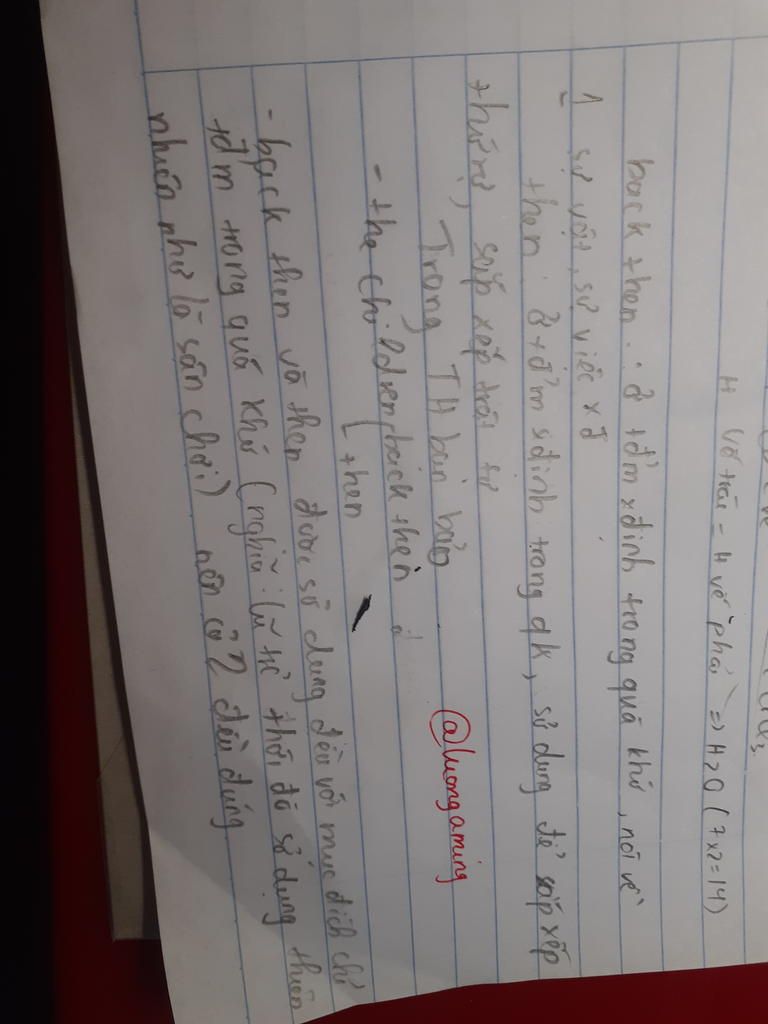 H vế trái = H vế phải => H2O (7x2=14)
back then : ở tđm xđịnh trong quá khứ, nói về
1 sự vật, sự việc xđ
then : ở tđm sđịnh trong qk, sử dụng để sắp xếp
thứ tự, sắp xếp trật tự
Trong TH bạn bảo
@luongaming
- the children back then
then
- back then và then được sử dụng đều với mục đích chỉ
tđm trong quá khứ (nghĩa: lũ trẻ thời đó sử dụng thiên
nhiên như là sân chơi) nên cả 2 đều đúng